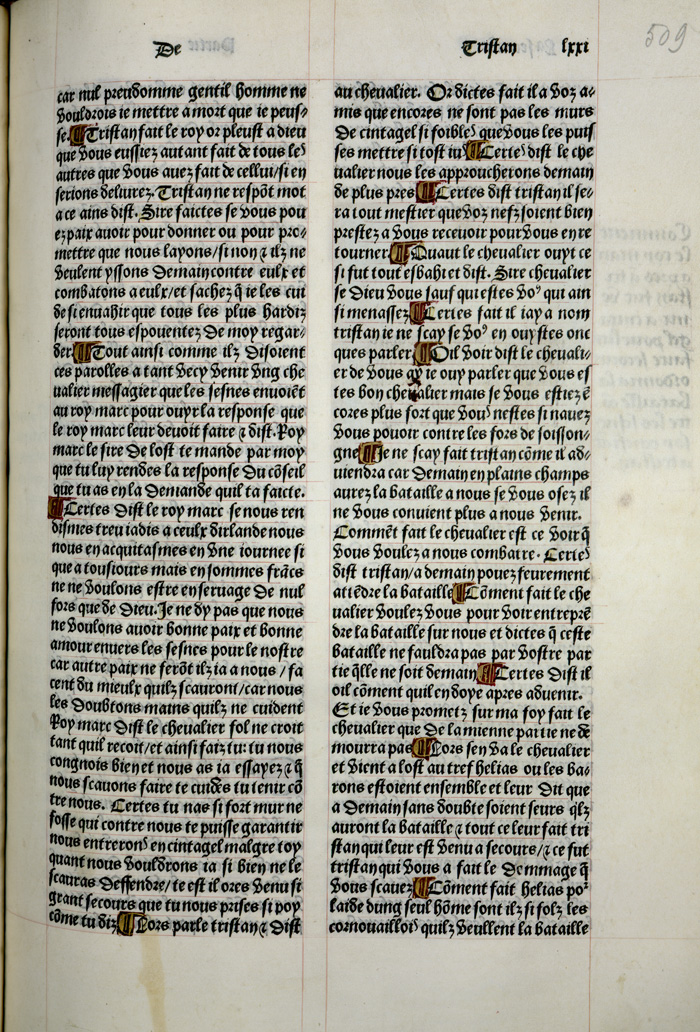 De
Tristan
lxxi
509
car nul preudomme gentil homme ne
vouldrois ie mettre a mort que ie peus⸗
se. ¶ Tristan fait le roy or pleust a dieu
que vous eussiez autant fait de tous leˢ
autres que vous auez fait de cellui/si en
serions deliurez. Tristan ne respõt mot
a ce ains dist. Sire faictes se vous pou
ez paix auoir pour donner ou pour pro⸗
mettre que nous layons/si non ⁊ ilz ne
veulent yssons demain contre eulx et
combatons a eulx/et sachez q̃ ie les cui
de si enuahir que tous les plus hardiz
seront tous espouentez de moy regar⸗
der ¶ Tout ainsi comme ilz disoient
ces parolles a tant vecy venir vng che
ualier messagier que les sesnes enuoiẽt
au roy marc pour ouyr la response que
le roy marc leur deuoit faire ⁊ dist. Roy
marc le sire de lost te mande par moy
que tu luy rendes la response du cõseil
que tu as en la demande quil ta faicte.
¶ Certes dist le roy marc se nous ren
dismes treu iadis a ceulx dirlande nous
nous en acquitasmes en vne iournee si
que a tousiours mais en sommes frãcs
ne ne voulons estre en seruage de nul
fors que de dieu. Je ne dy pas que nous
ne voulons auoir bonne paix et bonne
amour enuers les sesnes pour le nostre
car autre paix ne ferõt ilz ia a nous / fa
cent du mieulx quilz scauront/car nous
les doubtons mains quilz ne cuident
Roy marc dist le cheualier fol ne croit
tant quil recoit/et ainsi faiz tu: tu nous
congnois bien et nous as ia essayez ⁊ q̃
nous scauons faire te cuidẽs tu tenir cõ
tre nous. Certes tu nas si fort mur ne
fosse qui contre nous te puisse garantir
nous entrerons en cintagel malgre toy
quant nous vouldrons ia si bien ne le
scauras deffendre/ te est il ores venu si
grant secours que tu nous prises si poy
cõme tu diz ¶ Lors parle tristan ⁊ dist
au cheualier. Or dictes fait il a voz a⸗
mis que encores ne sont pas les murs
de cintagel si foibleˢ que vous les puis
ses mettre si tost ius ¶ Certeˢ dist le che
ualier nous les approucherons demain
de plus pres ¶ Certes dist tristan il se⸗
ra tout mestier que voz nefz soient bien
prestez a vous receuoir pour vous en re
tourner ¶ Quant le cheualier ouyt ce
si fut tout esbahi et dist. Sire cheualier
se dieu vous sauf qui estes voˢ qui ain
si menassez ¶ Certes fait il iay a nom
tristan ie ne scay se voˢ en ouystes onc
ques parler ¶ Oil voir dist le cheuali⸗
er de vous ay ie ouy parler que vous es
tes bon cheualier mais se vous estiez ẽ
cores plus fort que vouˢ nestes si nauez
vous pouoir contre les fors de soisson⸗
gne ¶ Je ne scay fait tristan cõme il ad⸗
uiendra car demain en plains champs
aurez la bataille a nous se vous osez il
ne vous conuient plus a nous venir.
Commẽt fait le cheualier est ce voir q̃
vous voulez a nous combatre. Certeˢ
dist tristan/a demain pouez seurement
attẽdre la bataille ¶ Cõment fait le che
ualier voulez vous pour voir entreprẽ
dre la bataille sur nous et dictes q̃ ceste
bataille ne fauldra pas par vostre par
tie q̃lle ne soit demain ¶ Certes dist il
oil cõment quil en doye apres aduenir.
Et ie vous prometz sur ma foy fait le
cheualier que de la mienne partie ne de
mourra pas ¶ Lors sen va le cheualier
et vient a lost au tref helias ou les ba⸗
rons estoient ensemble et leur dit que
a demain sans doubte soient seurs q̃lz
auront la bataille ⁊ tout ce leur fait tri
stan qui leur est venu a secours/⁊ ce fut
tristan qui vous a fait le dommage q̃
vous scauez ¶ Cõment fait helias poʳ
laide dung seul hõme sont ilz si folz les
cornouailloiˢ quilz veullent la bataille